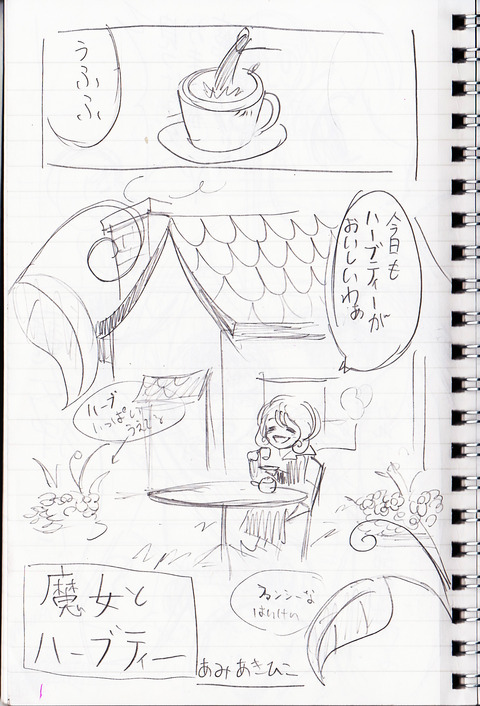 うふふ
今日も
ハーブティーが
おいしいわぁ
ハーブ
いっぱい
うえて
魔女と
ハーブティー
ファンシーな
はいけい
あみあきひこ
1